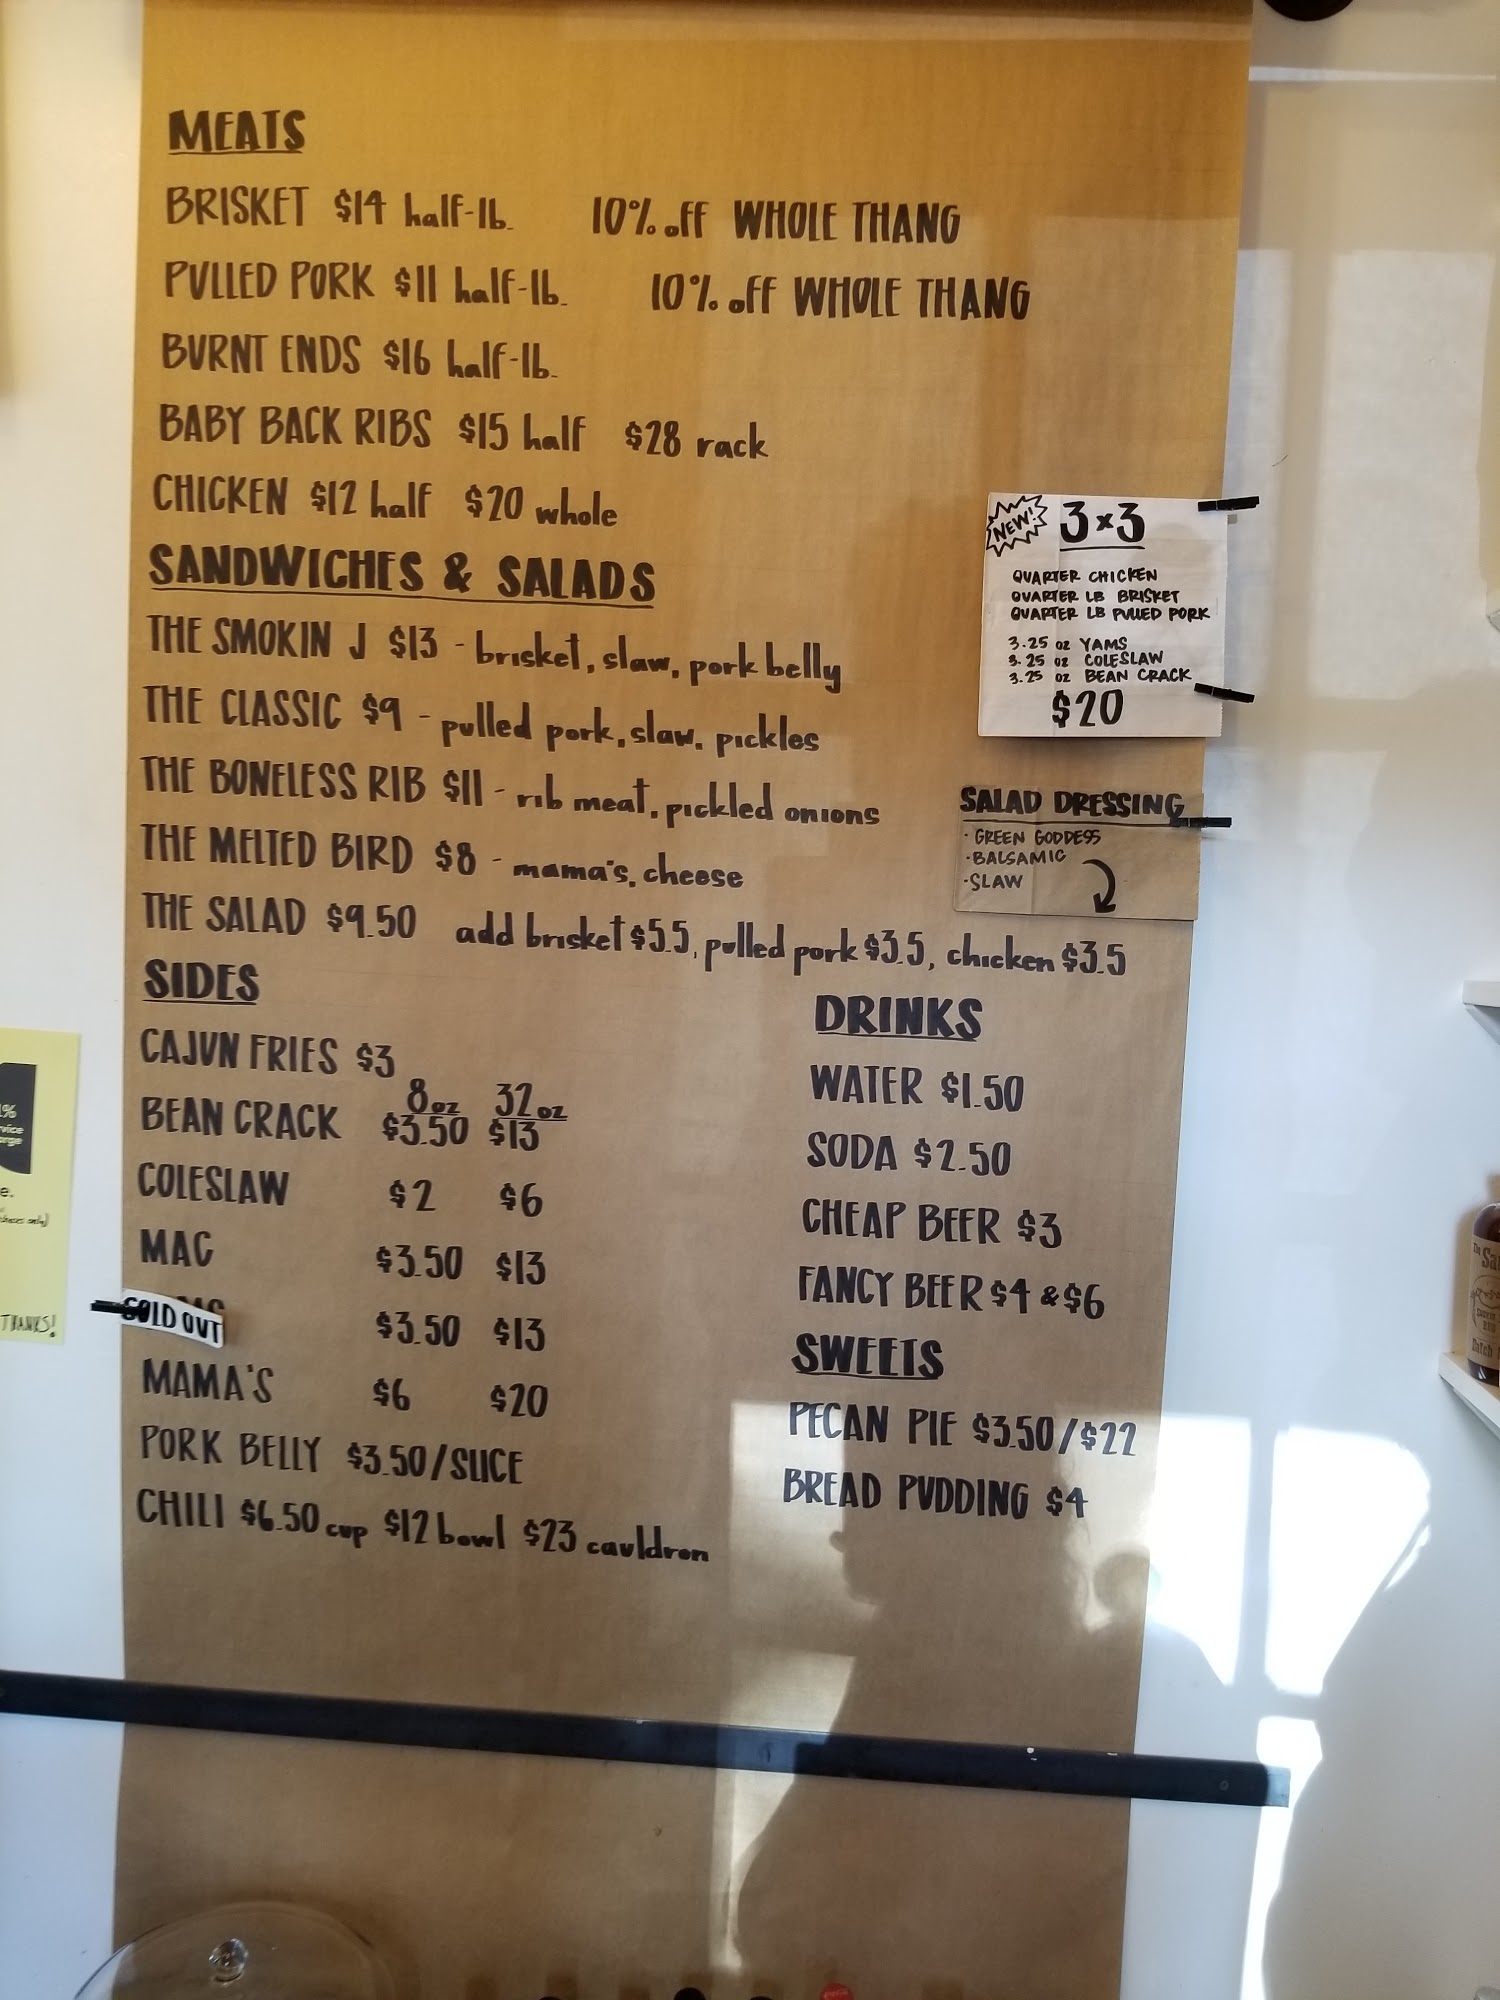 MEATS
BRISKET $14 half-lb. 10% off WHOLE THANG
PULLED PORK $11 half-lb. 10% off WHOLE THANG
BURNT ENDS $16 half-lb.
BABY BACK RIBS $15 half $28 rack
CHICKEN $12 half $20 whole
SANDWICHES & SALADS
THE SMOKIN J $13 - brisket, slaw, pork belly
THE CLASSIC $9 - pulled pork, slaw, pickles
THE BONELESS RIB $11 - rib meat, pickled onions
THE MELTED BIRD $8 - mama's, cheese
THE SALAD $9.50 add brisket $5.5, pulled pork $3.5, chicken $3.5
NEW! 3x3
QUARTER CHICKEN
QUARTER LB BRISKET
QUARTER LB PULLED PORK
3.25 oz YAMS
3.25 oz COLESLAW
3.25 oz BEAN CRACK
$20
SALAD DRESSING
· GREEN GODDESS
· BALSAMIC
· SLAW
SIDES
CAJUN FRIES $3
8 oz 32 oz
BEAN CRACK $3.50 $13
COLESLAW $2 $6
MAC $3.50 $13
SOLD OUT $3.50 $13
MAMA'S $6 $20
PORK BELLY $3.50/SLICE
CHILI $6.50 cup $12 bowl $23 cauldron
DRINKS
WATER $1.50
SODA $2.50
CHEAP BEER $3
FANCY BEER $4 & $6
SWEETS
PECAN PIE $3.50/$22
BREAD PUDDING $4
THANKS!